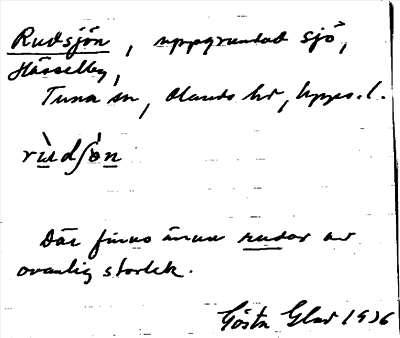 Rudsjön, uppgrundad sjö,
Hässelby,
Tuna sn, Olands hd, Upps. l.
rùdʃòn
Där finns ännu rudor av
ovanlig storlek.
Gösta Glad 1936